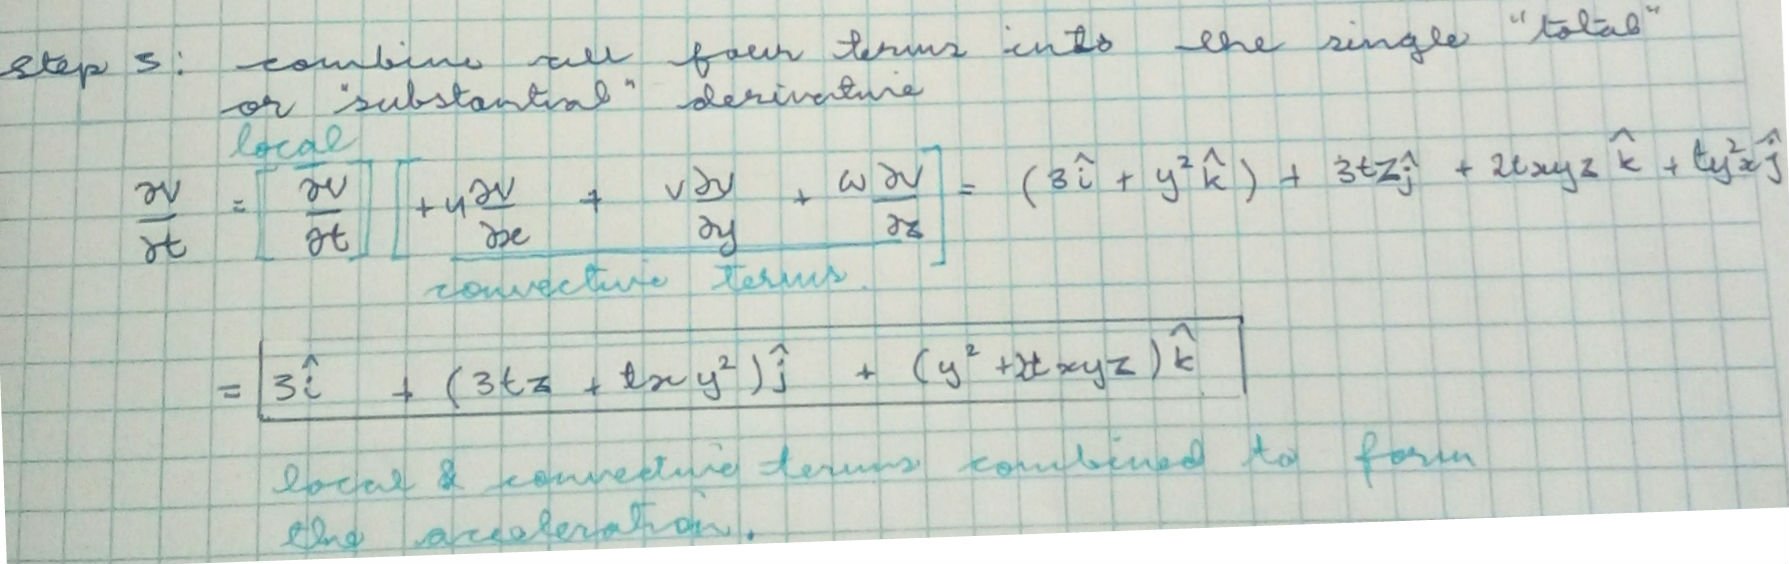 step 3: combine all four terms into the single "total"
or "substantial" derivative
local
∂V/∂t = [∂V/∂t] [+ u ∂V/∂x + v ∂V/∂y + w ∂V/∂z] = (3î + y²k̂) + 3tzĵ + 2txyz k̂ + ty²xĵ
convective terms.
= 3î + (3tz + txy²)ĵ + (y² + 2txyz)k̂
local & convective terms combined to form
the acceleration.